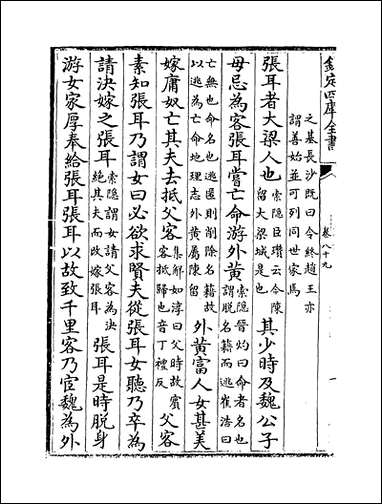 欽定四庫全書 卷八十九
之基長沙既曰令終趙王亦
謂善始並可列同世家焉
張耳者大梁人也 索隱臣瓚云今陳留大梁城是也 其少時及魏公子
毋忌為客張耳嘗亡命游外黃 索隱晉灼曰命者名也謂脫名籍而逃崔浩曰
亡無也命名也逃匿則削除名籍故以逃為亡命地理志外黃屬陳留 外黃富人女甚美
嫁庸奴亡其夫去抵父客 集解如淳曰父時故賓客抵歸也音丁禮反 父客
素知張耳乃謂女曰必欲求賢夫從張耳女聽乃卒為
請決嫁之張耳 索隱謂女請父客為決絕其夫而改嫁張耳 張耳是時脫身
游女家厚奉給張耳張耳以故致千里客乃宦魏為外